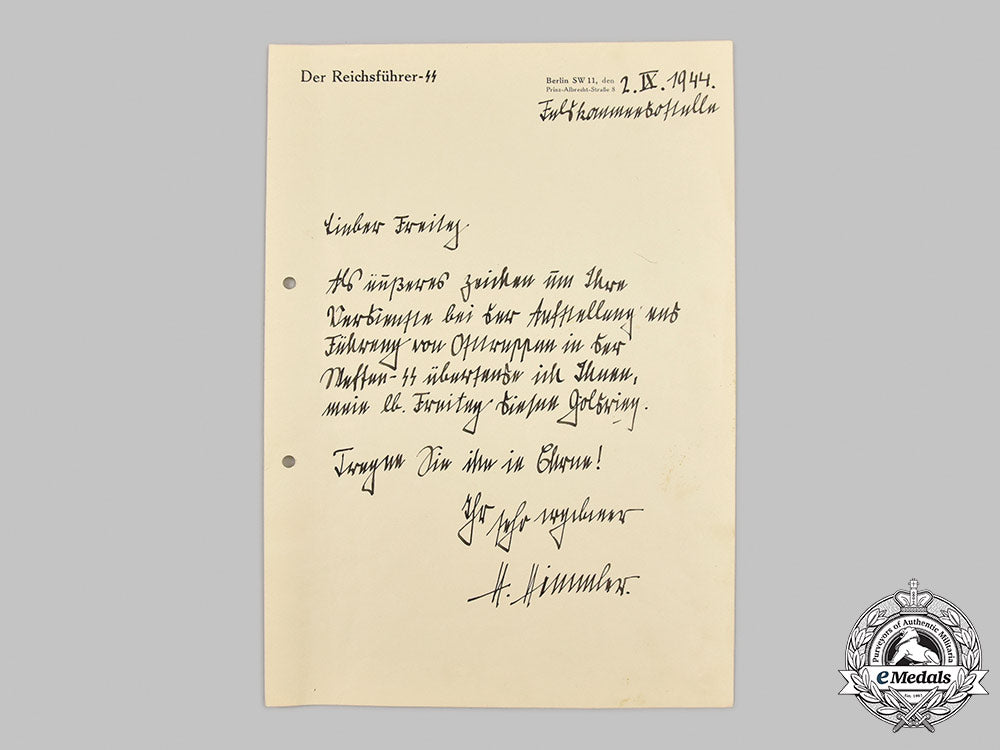 Der Reichsführer-SS
Berlin SW 11, den 2. IX. 1944.
Prinz-Albrecht-Straße 8
Feldkommandostelle
Lieber Freitag
Als äußeres Zeichen um Ihre
Verdienste bei der Aufstellung und
Führung von Osttruppen in der
Waffen-SS übersende ich Ihnen,
mein lb. Freitag diesen Goldring.
Tragen Sie ihn in Ehren!
Ihr sehr ergebener
H. Himmler.
Purveyors of Authentic Militaria
eMedals
Est. 1967